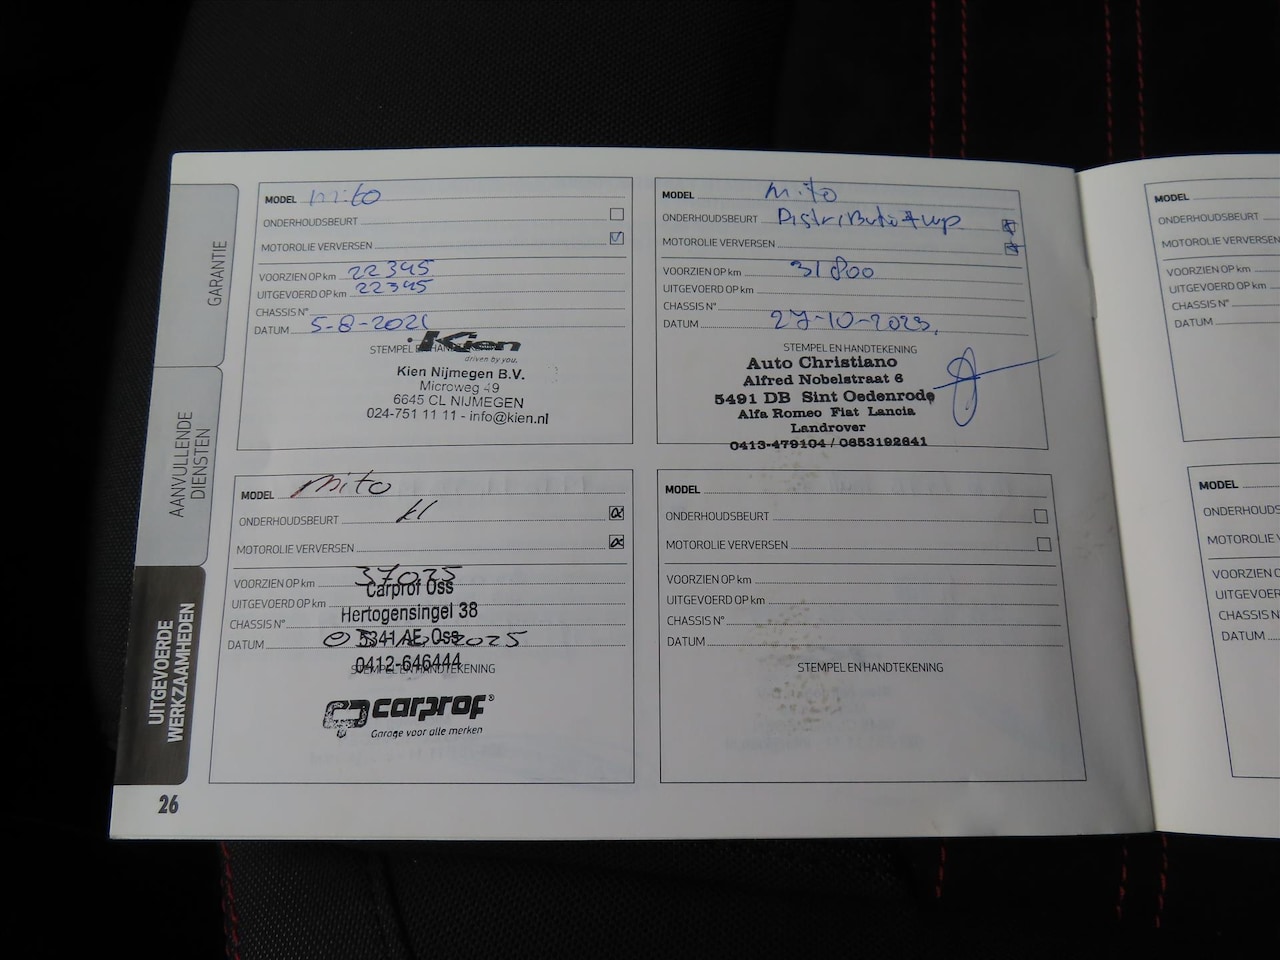 GARANTIE
AANVULLENDE
DIENSTEN
UITGEVOERDE
WERKZAAMHEDEN
26
MODEL mito
ONDERHOUDSBEURT
MOTOROLIE VERVERSEN
VOORZIEN OP km 22345
UITGEVOERD OP km 22345
CHASSIS N°
DATUM 5-8-2021
STEMPEL EN HANDTEKENING
Kien
driven by you.
Kien Nijmegen B.V.
Microweg 49
6645 CL NIJMEGEN
024-751 11 11 - info@kien.nl
MODEL mito
ONDERHOUDSBEURT Distributie + wp
MOTOROLIE VERVERSEN
VOORZIEN OP km 31800
UITGEVOERD OP km
CHASSIS N°
DATUM 27-10-2023,
STEMPEL EN HANDTEKENING
Auto Christiano
Alfred Nobelstraat 6
5491 DB Sint Oedenrode
Alfa Romeo Fiat Lancia
Landrover
0413-479104 / 0653192641
MODEL mito
ONDERHOUDSBEURT
MOTOROLIE VERVERSEN
VOORZIEN OP km 37025
Carprof Oss
UITGEVOERD OP km
Hertogensingel 38
CHASSIS N°
DATUM 2025
5341 AE Oss
0412-646444
STEMPEL EN HANDTEKENING
carprof®
Garage voor alle merken
MODEL
ONDERHOUDSBEURT
MOTOROLIE VERVERSEN
VOORZIEN OP km
UITGEVOERD OP km
CHASSIS N°
DATUM
STEMPEL EN HANDTEKENING
MODEL
ONDERHOUDSBEURT
MOTOROLIE VERVERSEN
VOORZIEN OP km
UITGEVOERD OP km
CHASSIS N°
DATUM
MODEL
ONDERHOUDS
MOTOROLIE
VOORZIEN OP km
UITGEVOER
CHASSIS N°
DATUM